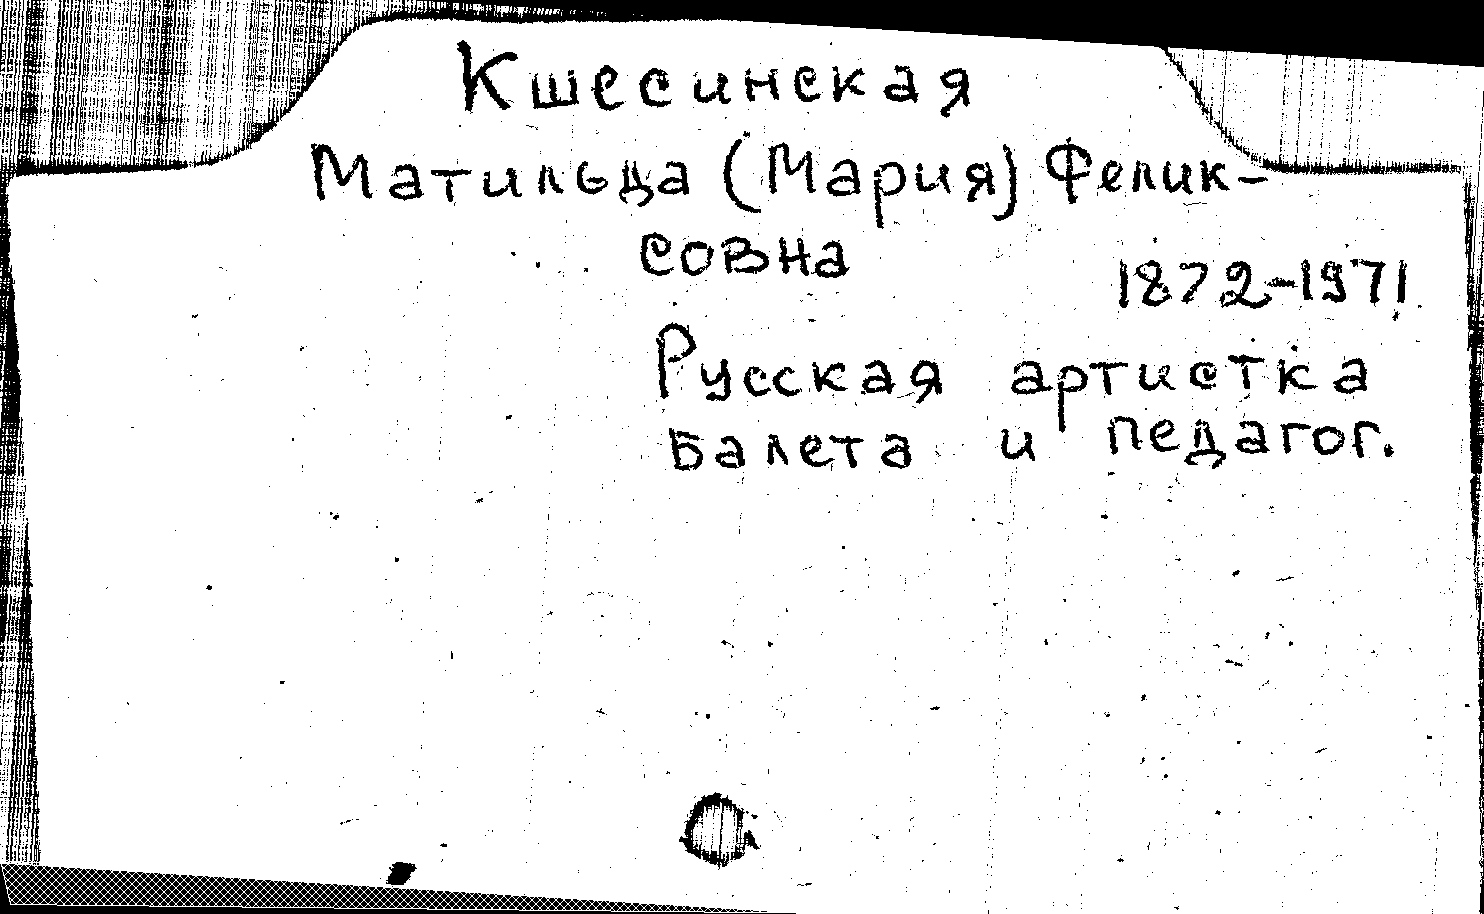 Кшесинская
Матильда (Мария) Феликс-
совна
1872-1971
Русская артистка
балета и педагог.